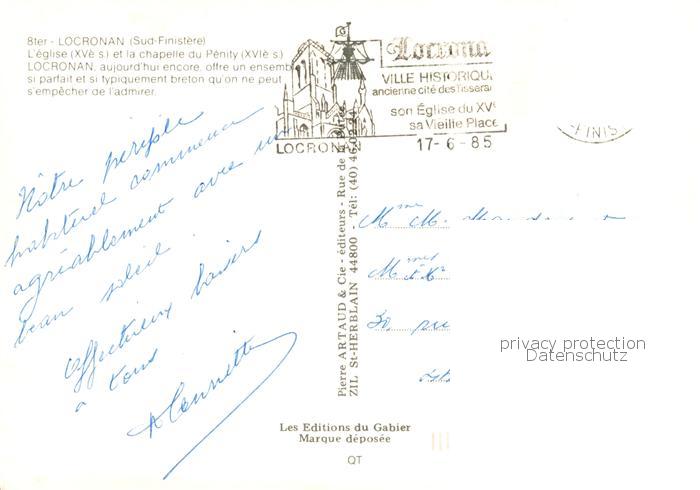 8ter - LOCRONAN (Sud-Finistère)
L'église (XVè s.) et la chapelle du Pénity (XVIè s.)
LOCRONAN, aujourd'hui encore, offre un ensemb
si parfait et si typiquement breton qu'on ne peut
s'empêcher de l'admirer.
Locrona
VILLE HISTORIQU
ancienne cité des Tissera
son Église du XVe
sa Vieille Place
LOCRONAN
17-6-85
FINIS
Nôtre périple
habituel commence
agréablement avec un
beau soleil.
Affectueux baisers
à tous
Pierre ARTAUD & Cie - éditeurs - Rue de
ZIL St-HERBLAIN 44800 Tél: (40) 46
Mme M.
30, ru
privacy protection
Datenschutz
Les Editions du Gabier
Marque déposée
QT